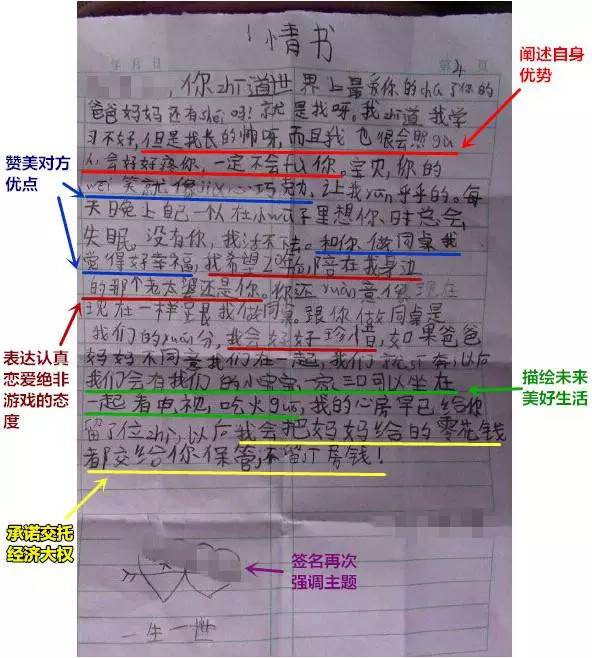 情书
年 月 日 第 4 页
阐述自身
优势
,你zhi道世界上最爱你的cha了你的
爸爸妈妈还有shei吗!就是我呀。我zhi道我学
习不好,但是我长的帅呀,而且我也很会照gu
会好好疼你,一定不会fu你。宝贝,你的
赞美对方
优点
wei笑就像 巧克力,让我 乎乎的。每
天晚上自己一人在小wu子里想你,时总会
失眠。没有你,我活不下去。和你做同桌我
觉得好幸福,我希望 陪在我身边
的那个老太婆还是你。你还yuan意像现在
现在一样跟我做同桌。跟你做同桌是
我们的yuan分,我会好好珍惜,如果爸爸
妈妈不同意我们在一起,我们就 奔,以后
表达认真
恋爱绝非
游戏的态
度
我们会有我们的小宝宝一家三口可以坐在
一起看电视,吃火guo,我的心房早已给你
描绘未来
美好生活
留了位zhi,以后我会把妈妈给的零花钱
都交给你保管,不留 房钱!
承诺交托
经济大权
签名再次
强调主题
一生一世